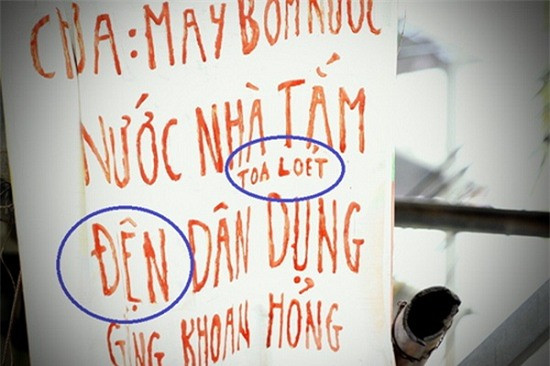 CHA: MAY BƠM NƯỚC
NƯỚC NHÀ TẤM
TOA LOET
ĐỆN DÂN DỤNG
GING KHOAN HỎNG